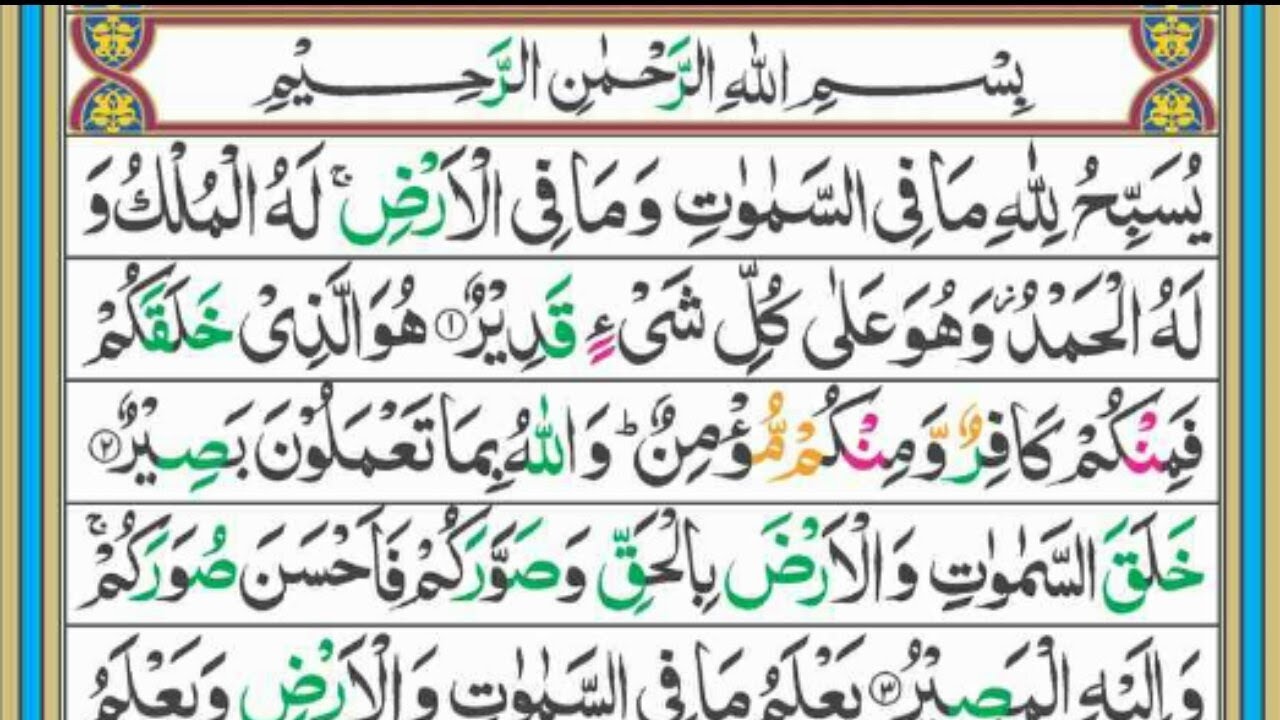 بِسْمِ اللهِ الرَّحْمٰنِ الرَّحِيْمِ
يُسَبِّحُ لِلّٰهِ مَا فِى السَّمٰوٰتِ وَمَا فِى الْاَرْضِ ۚ لَهُ الْمُلْكُ وَ
لَهُ الْحَمْدُ ؗ وَهُوَ عَلٰى كُلِّ شَىْءٍ قَدِيْرٌ ١ هُوَ الَّذِىْ خَلَقَكُمْ
فَمِنْكُمْ كَافِرٌ وَّمِنْكُمْ مُّؤْمِنٌ ؕ وَاللّٰهُ بِمَا تَعْمَلُوْنَ بَصِيْرٌ ٢
خَلَقَ السَّمٰوٰتِ وَالْاَرْضَ بِالْحَقِّ وَصَوَّرَكُمْ فَاَحْسَنَ صُوَرَكُمْ ۚ
وَاِلَيْهِ الْمَصِيْرُ ٣ يَعْلَمُ مَا فِى السَّمٰوٰتِ وَالْاَرْضِ وَيَعْلَمُ